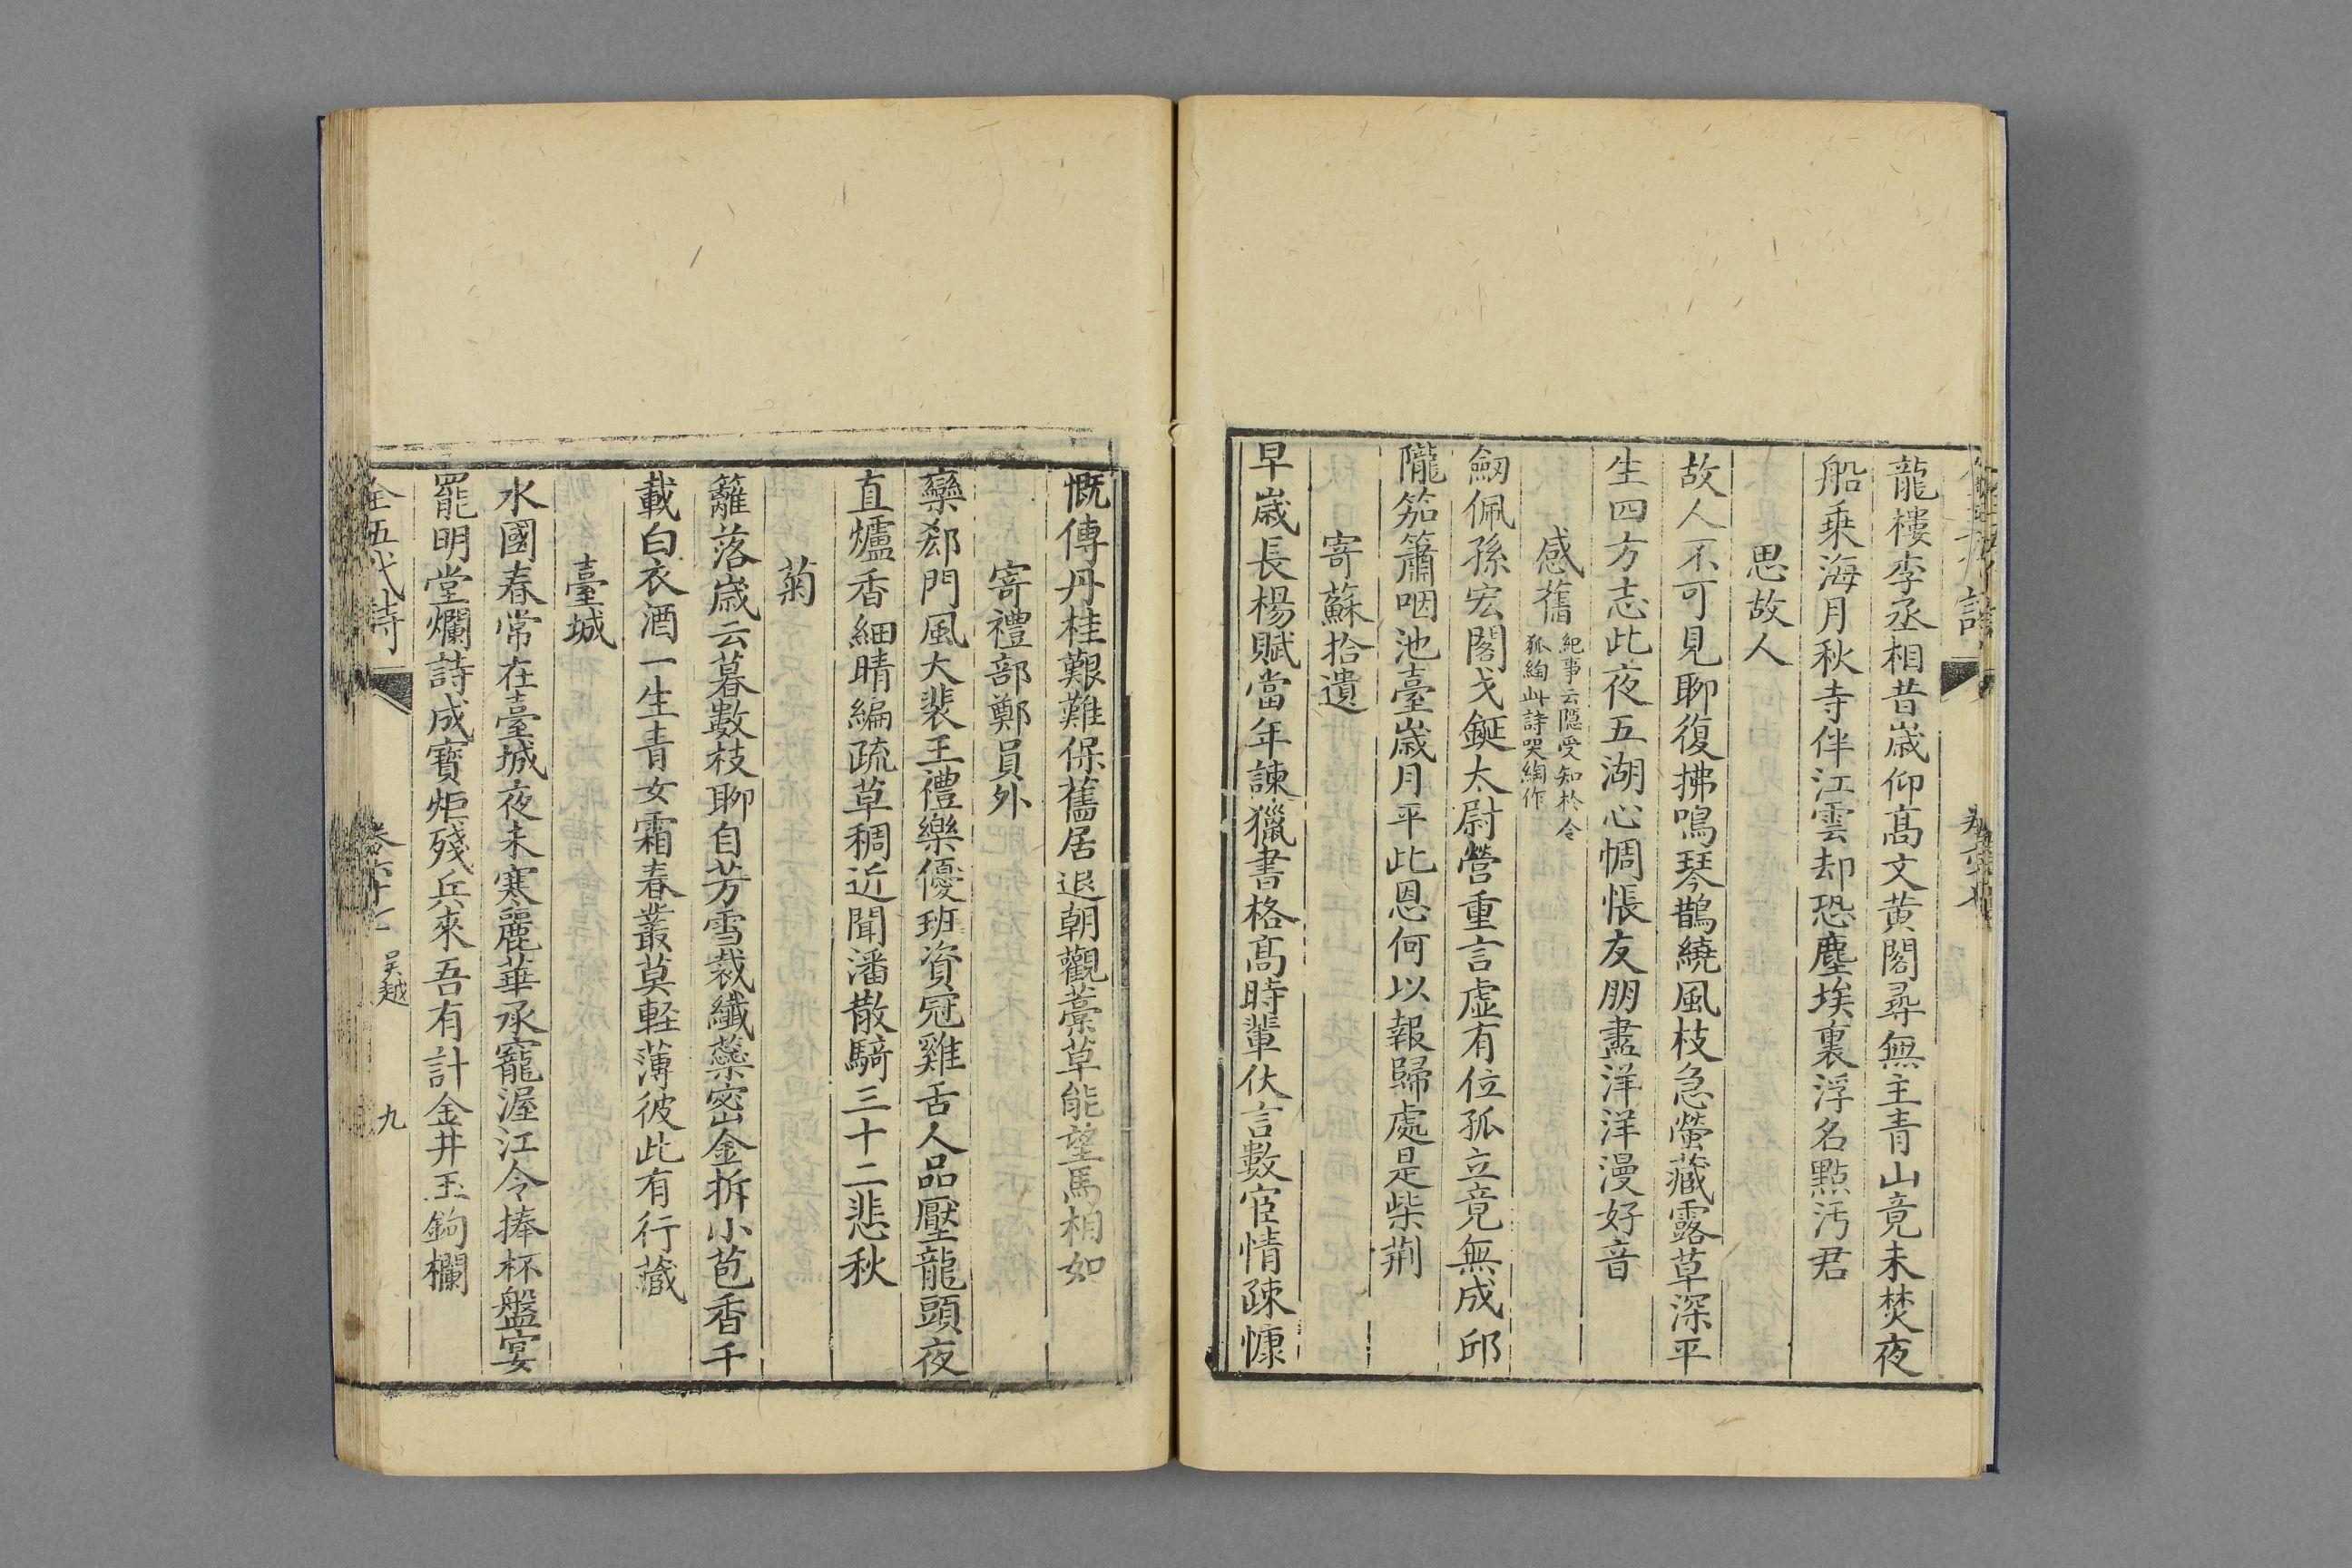 龍樓李丞相昔歲仰髙文黃閣尋無主青山竟未焚夜
船乗海月秋寺伴江雲却恐塵埃裏浮名㸃汚君
思故人
故人不可見聊復拂鳴琴鵲繞風枝急螢藏露草深平
生四方志此夜五湖心惆悵友朋盡洋洋漫好音
感舊
紀事云隱受知於令
狐綯此詩哭綯作
劒佩孫宏閣戈鋋太尉營重言虛有位孤立竟無成邱
隴笳簫咽池臺歲月平此恩何以報歸處是柴荆
寄蘇拾遺
早歲長楊賦當年諫獵書格髙時輩伏言數宦情疎慷
慨傳丹桂艱難保舊居退朝觀藁草能望馬相如
寄禮部鄭員外
欒郄門風大裴王禮樂優班資冠雞舌人品壓龍頭夜
直爐香細晴編疏草稠近聞潘散騎三十二悲秋
菊
籬落歲云暮數枝聊自芳雪裁纖蘂宻金拆小苞香千
載白衣酒一生青女霜春叢莫輕薄彼此有行藏
臺城
水國春常在臺城夜未寒麗華承寵渥江令捧杯盤宴
罷明堂爛詩成寶炬殘兵來吾有計金井玉鉤欄
全五代詩
卷六十七
吳越
九